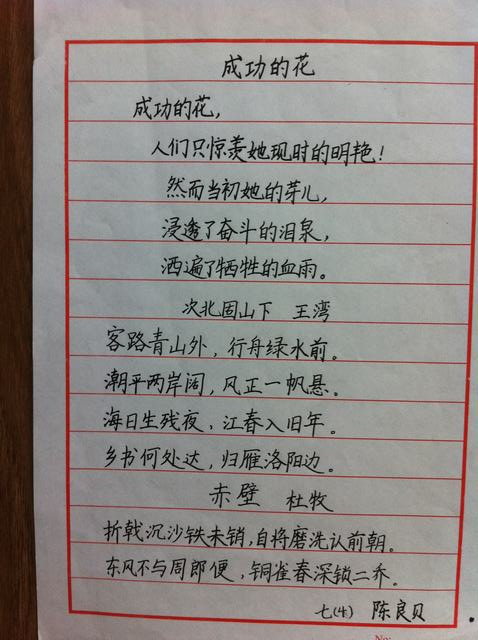 成功的花
成功的花，
人们只惊羡她现时的明艳！
然而当初她的芽儿，
浸透了奋斗的泪泉，
洒遍了牺牲的血雨。
次北固山下 王湾
客路青山外，行舟绿水前。
潮平两岸阔，风正一帆悬。
海日生残夜，江春入旧年。
乡书何处达，归雁洛阳边。
赤壁 杜牧
折戟沉沙铁未销，自将磨洗认前朝。
东风不与周郎便，铜雀春深锁二乔。
七(4) 陈良贝
No: